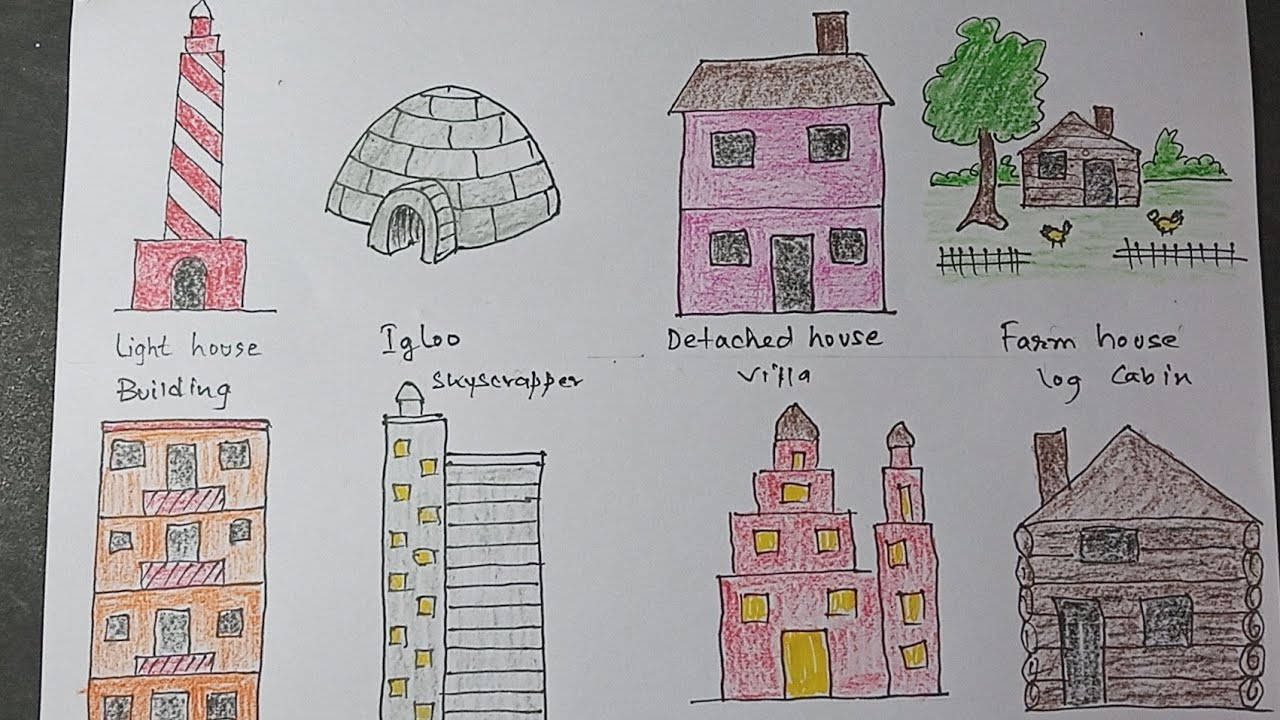 Light house
Igloo
Detached house
Farm house
Building
Skyscrapper
Villa
log Cabin